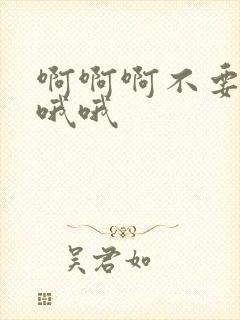 啊啊啊不要
哦哦
吴君如